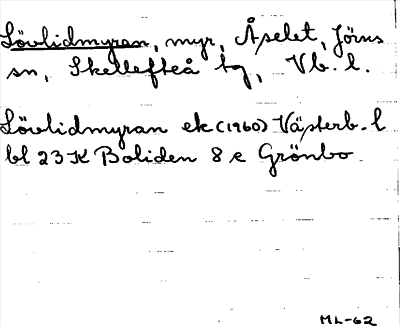 Lövlidmyran, myr, Åselet, Jörns
sn, Skellefteå tg, Vb. l.
Lövlidmyran ek (1960) Västerb. l
bl 23 K Boliden 8 e Grönbo
ML-62